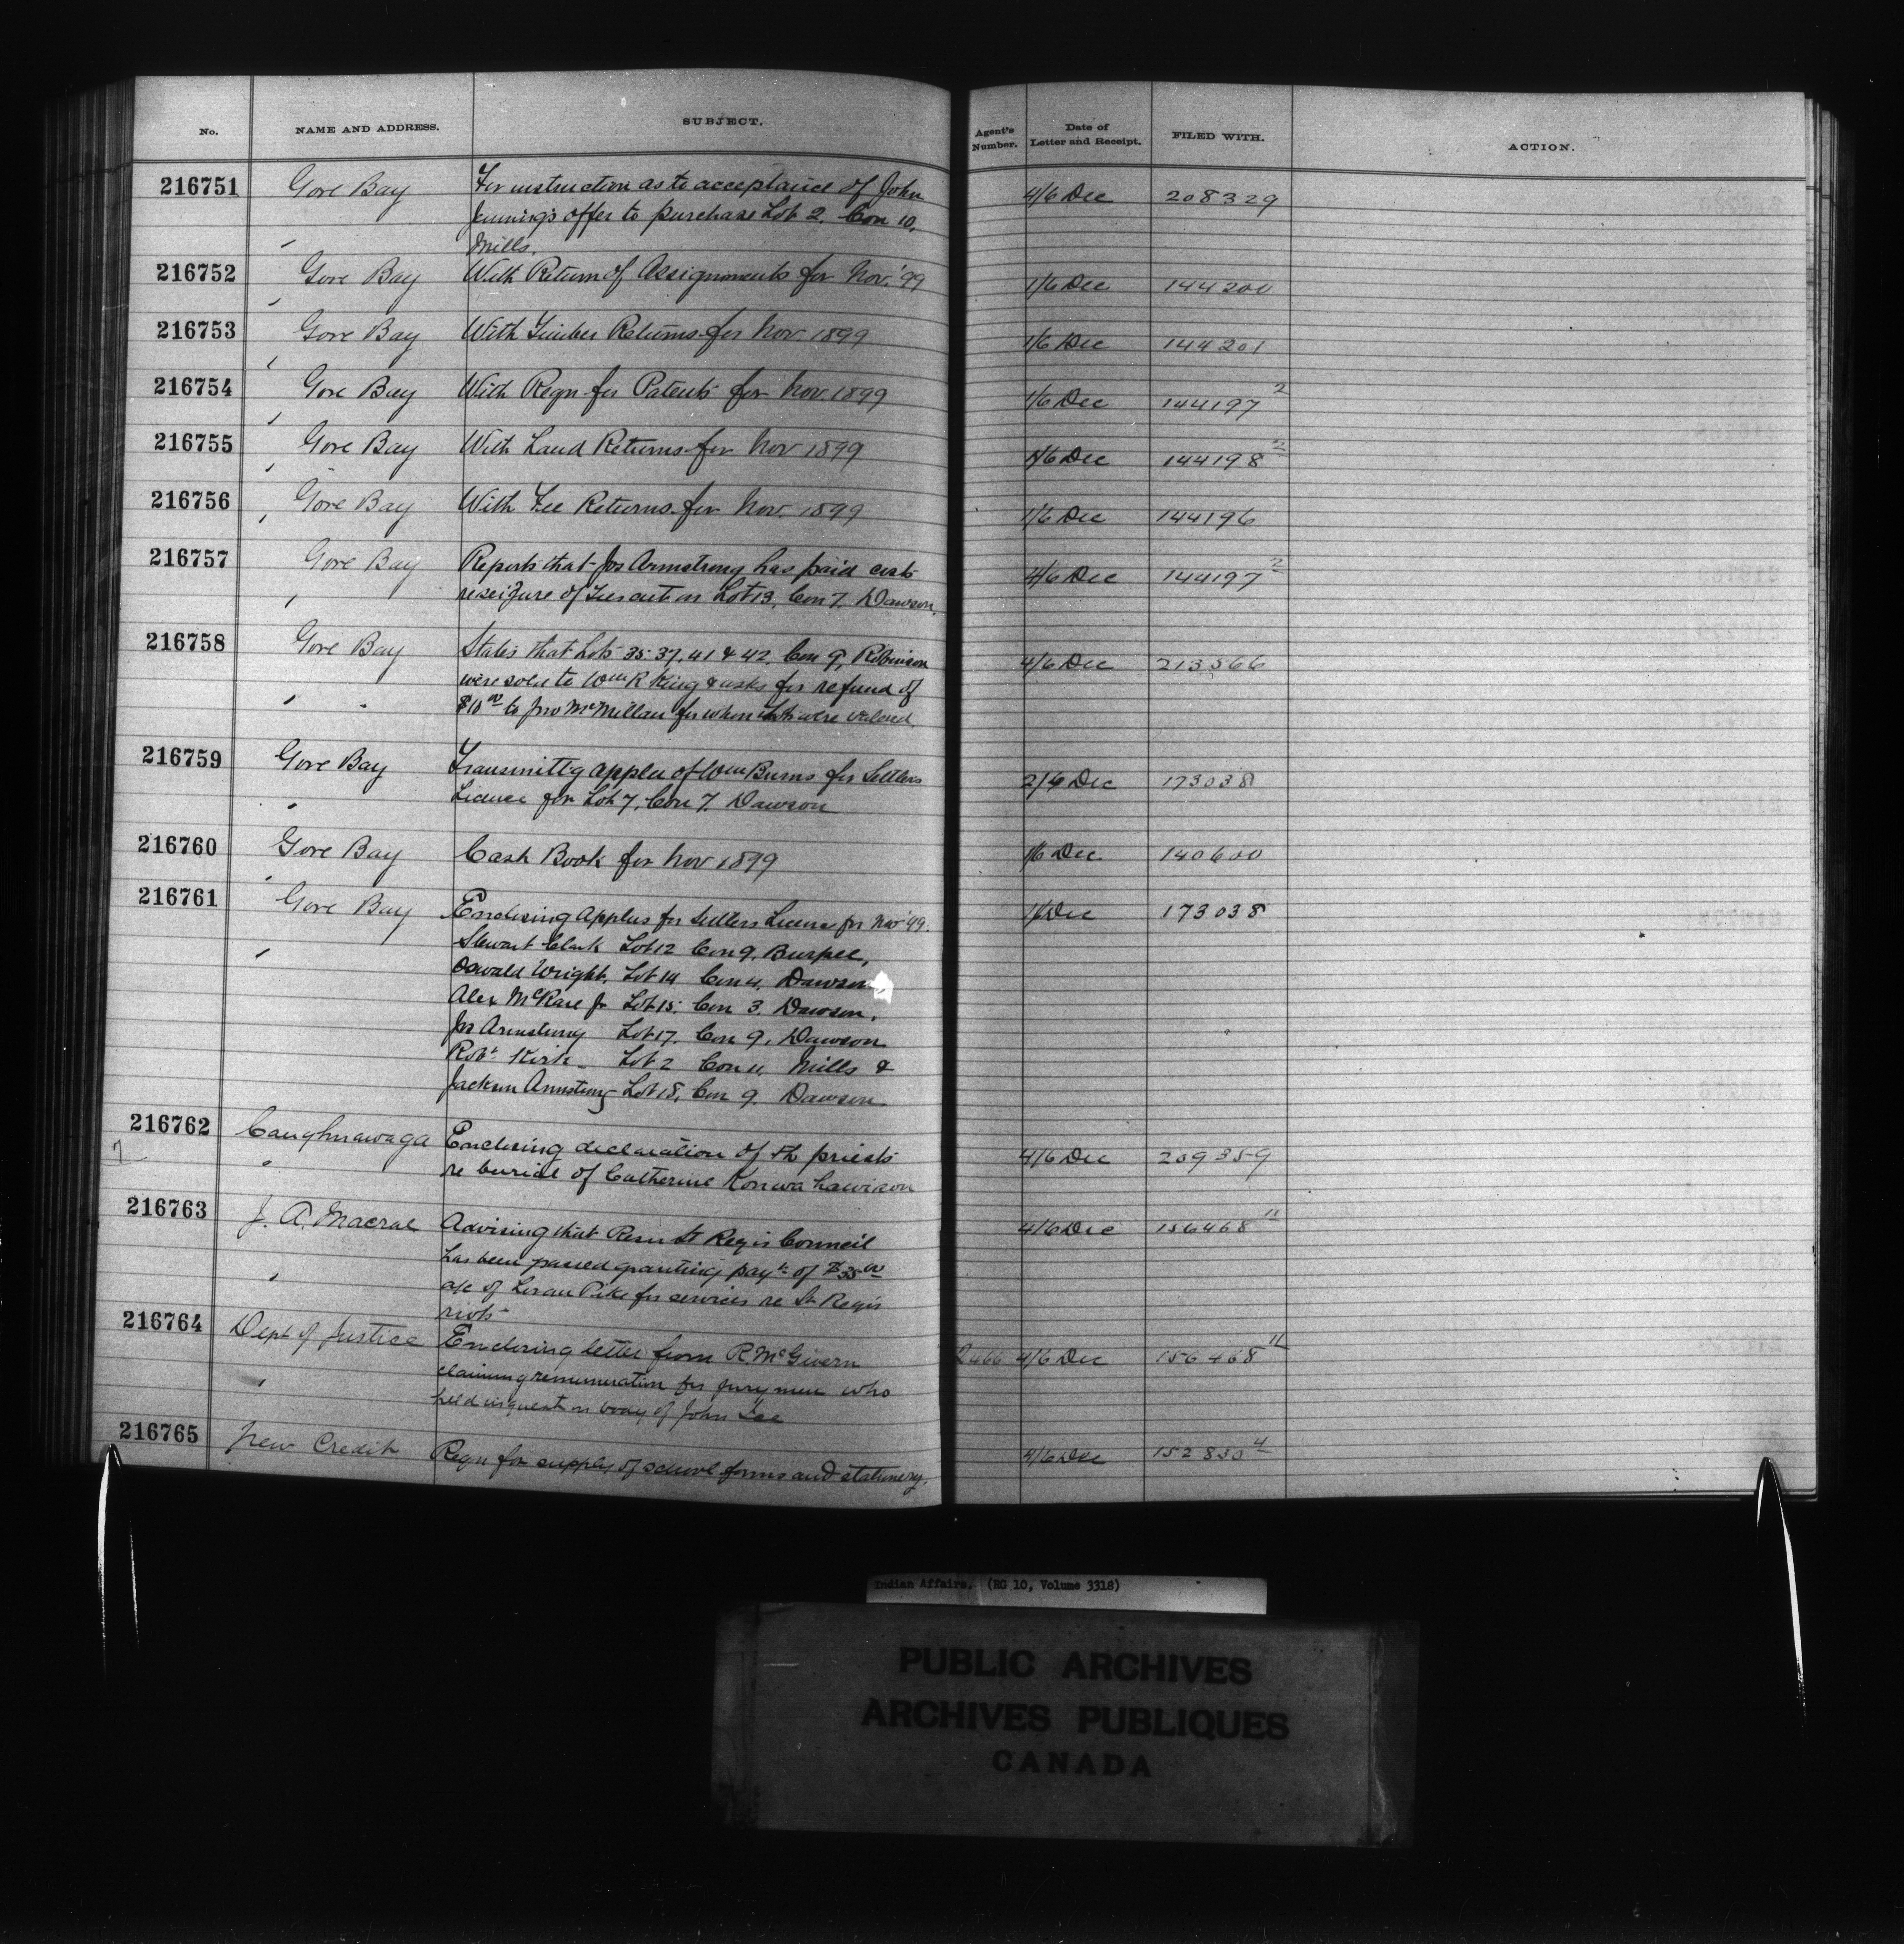 No. NAME AND ADDRESS. SUBJECT. Agent's Number. Date of Letter and Receipt. FILED WITH. ACTION.
216751 Gore Bay For instruction as to acceptance of John 4/6 Dec 208329
Jennings offer to purchase Lot 2, Con 10,
Mills.
216752 Gore Bay With Return of Assignments for Nov. '99 1/6 Dec 144200
216753 Gore Bay With Timber Returns for Nov. 1899 1/6 Dec 144201
216754 Gore Bay With Reqn for Patents for Nov. 1899 1/6 Dec 144197 2
216755 Gore Bay With Land Returns for Nov 1899 4/6 Dec 144198 2
216756 Gore Bay With Fee Returns for Nov. 1899 1/6 Dec 144196
216757 Gore Bay Reports that Jos Armstrong has paid costs 4/6 Dec 144197 2
re seizure of Ties cut on Lot 13, Con 7, Dawson.
216758 Gore Bay States that Lots 35. 37. 41 & 42, Con 9, Robinson 4/6 Dec 213566
were sold to Wm R King & asks for refund of
$10 00 to Jno McMillan for whom Lots were valued
216759 Gore Bay Transmittg applcn of Wm Burns for Settlers 2/6 Dec 173038
Licence for Lot 7, Con 7. Dawson
216760 Gore Bay Cash Book for Nov 1899 1/6 Dec. 140600
216761 Gore Bay Enclosing Applns for Settlers Licence for Nov '99. 1/6 Dec 173038
Stewart Clark Lot 12 Con 9, Burpee,
Oswald Wright, Lot 14 Con 4, Dawson
Alex McRae Jr Lot 15. Con 3. Dawson,
Jos Armstrong Lot 17. Con 9, Dawson
Robt Kirk Lot 2 Con 11, Mills &
Jackson Armstrong Lot 18, Con 9. Dawson
216762 Caughnawaga Enclosing declaration of the priests 4/6 Dec 209359
re burial of Catherine
216763 J. A. Macrae Advising that Resn St Regis Council 4/6 Dec 156468 11
has been passed granting payt of $35 00
a/c of Loran Pike for services re St Regis
riots
216764 Dept of Justice Enclosing letter from R. McGivern 2466 4/6 Dec 156468 11
claiming remuneration for jurymen who
held inquest on body of John
216765 New Credit Reqn for supply of school forms and stationery. 4/6 Dec 152830 4
Indian Affairs. (RG 10, Volume 3318)
PUBLIC ARCHIVES
ARCHIVES PUBLIQUES
CANADA